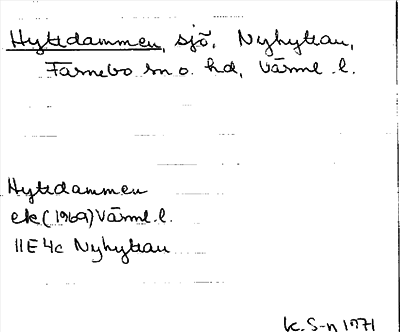 Hyttdammen, sjö, Nyhyttan,
Färnebo sn o. hd, Värml. l.
Hyttdammen
ek (1969) Värml. l.
11E4c Nyhyttan
K. S-n 1971